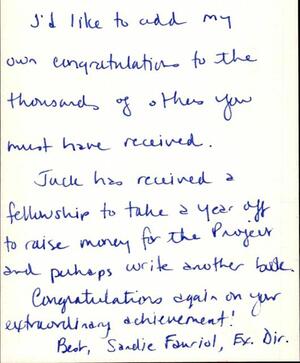 I'd like to add my
own congratulations to the
thousands of others you
must have received.
Jack has received a
fellowship to take a year off
to raise money for the Project
and perhaps write another book.
Congratulations again on your
extraordinary achievement!
Best, Sandie Fauriol, Ex. Dir.